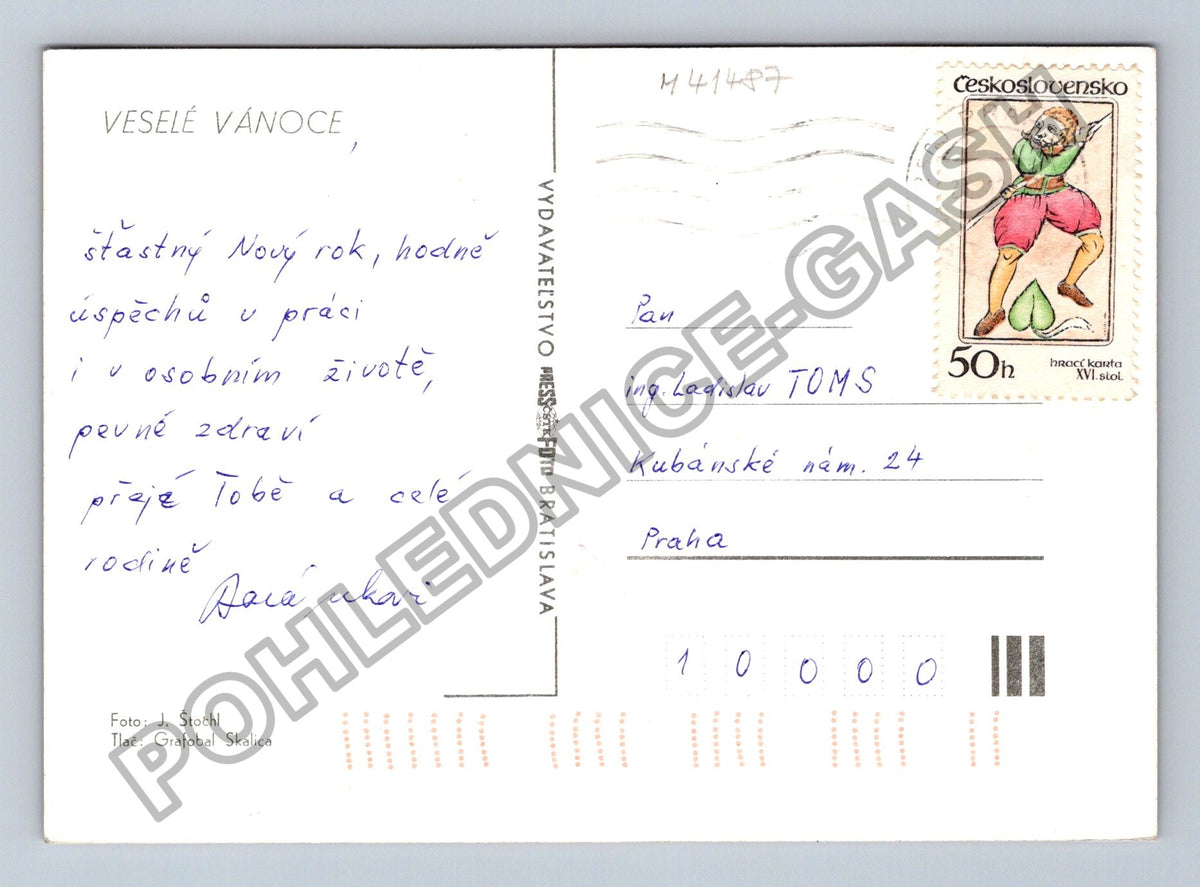 VESELÉ VÁNOCE,
šťastný Nový rok, hodně
úspěchů v práci
i v osobním životě,
pevné zdraví
přejé Tobě a celé
rodině
Foto: J. Štochl
Tlač: Grafobal Skalica
VYDAVATEĽSTVO PRESSFOTO BRATISLAVA
ČSTK
M 41487
Československo
50h
hrací karta
XVI. stol.
Pan
ing. Ladislav TOMS
Kubánské nám. 24
Praha
1 0 0 0 0
POHLEDNICE-GASH